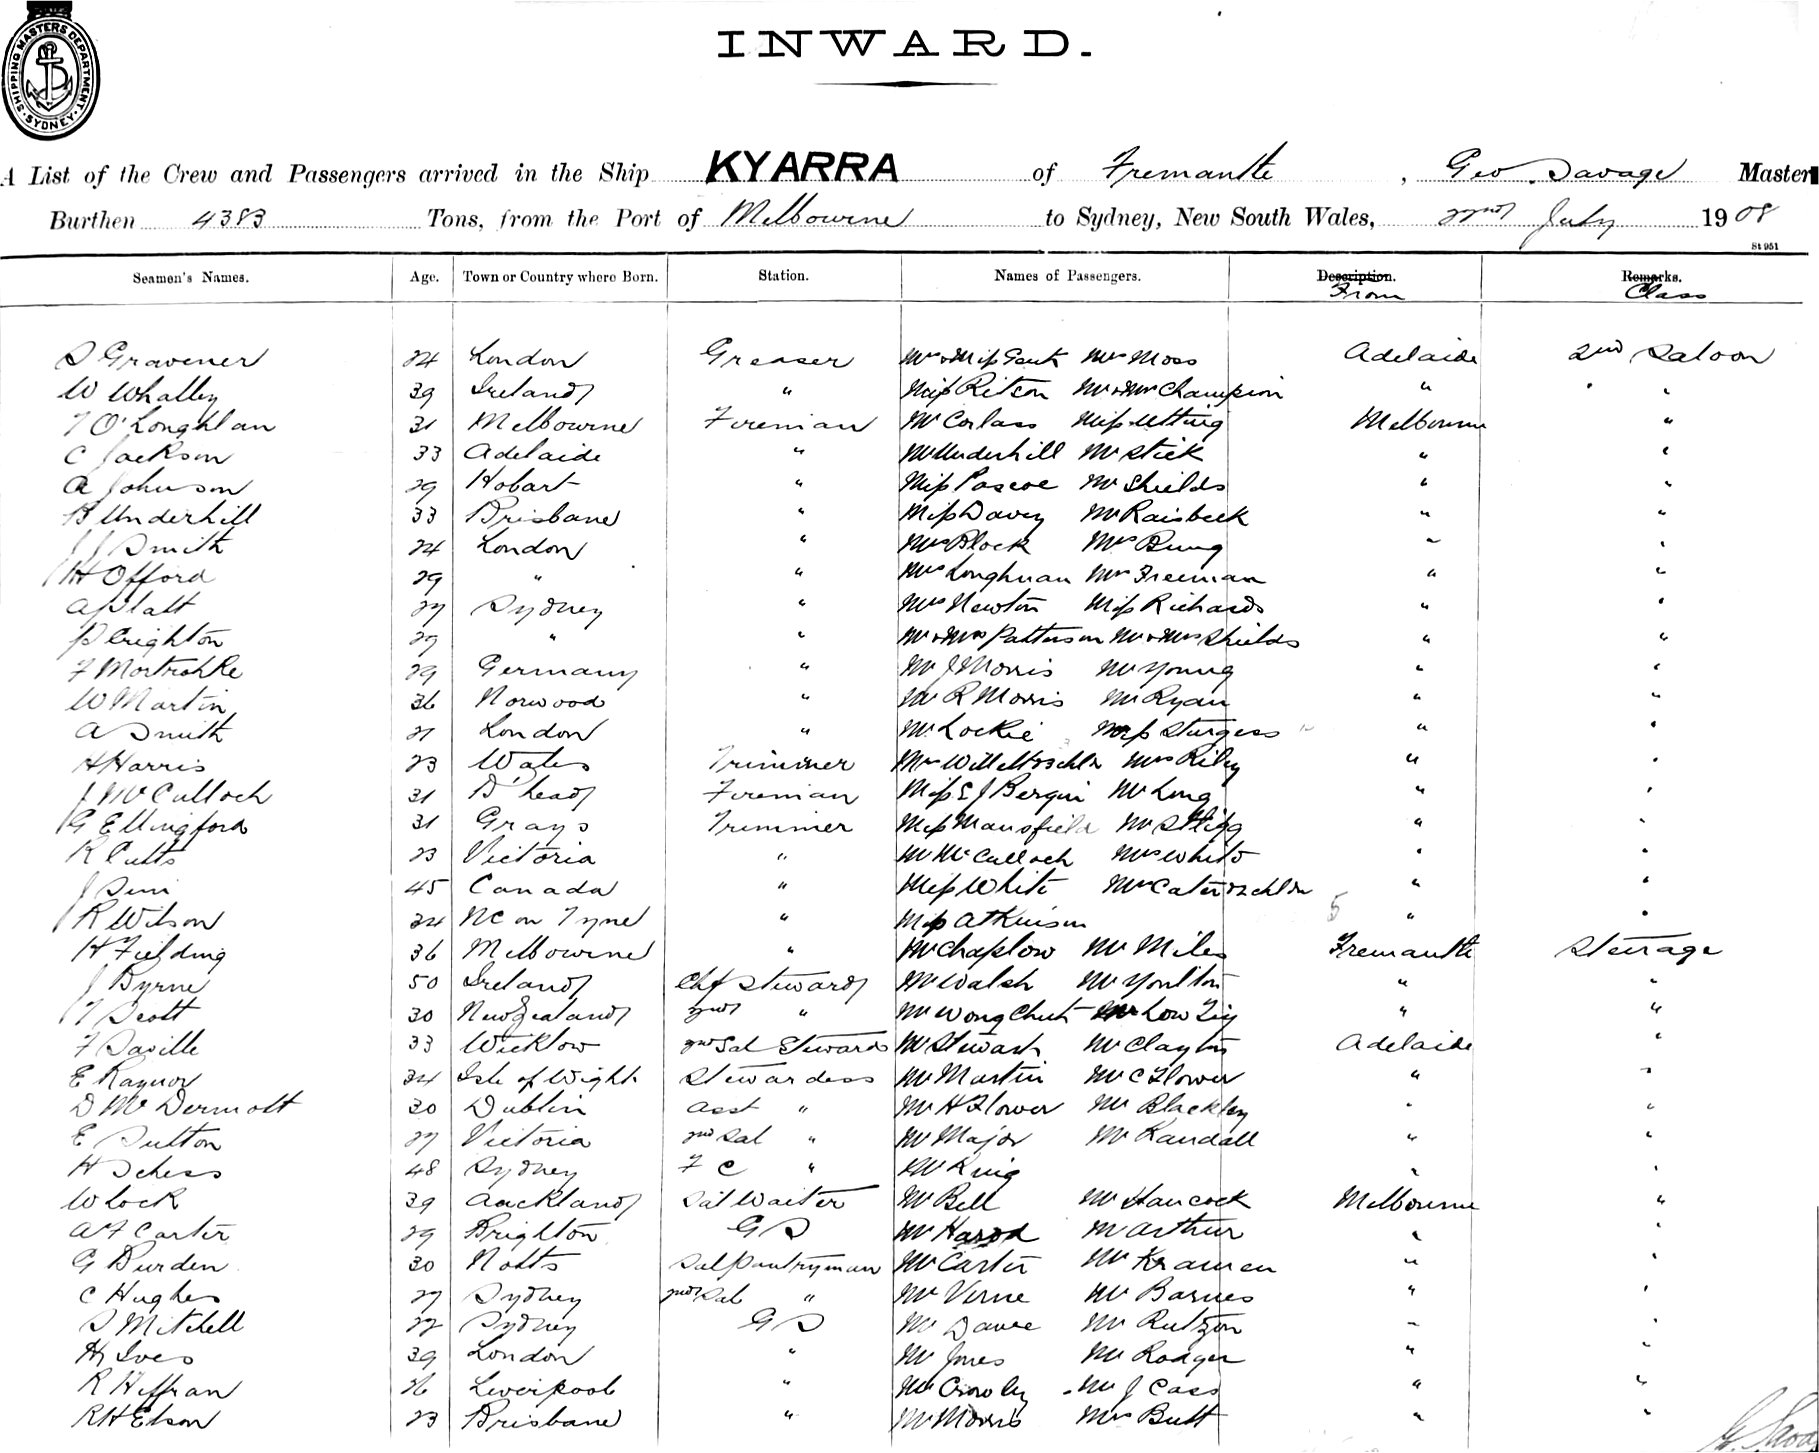 SHIPPING MASTERS DEPARTMENT SYDNEY
INWARD.
A List of the Crew and Passengers arrived in the Ship KYARRA of Fremantle, Geo. Savage Master
Burthen 4383 Tons, from the Port of Melbourne to Sydney, New South Wales, 22nd July 1908
St 951
Seamen's Names. Age. Town or Country where Born. Station. Names of Passengers. Description. Remarks.
From Class
S Gravener 24 London Greaser Mr & Miss Gent Mrs Moss Adelaide 2nd Saloon
W Whalley 39 Ireland " Miss Ritson Mr & Mrs Champion " "
T O'Loughlan 31 Melbourne Fireman Mr Corlass Miss Utting Melbourne "
C Jackson 33 Adelaide " Mr Underhill Mr Stick " "
A Johnson 29 Hobart " Miss Pascoe Mr Shields " "
B Underhill 33 Brisbane " Miss Davey Mr Raisbeck " "
J J Smith 24 London " Mrs Block Mrs Bung " "
H Offord 29 " " Mrs Longhman Mrs Freeman " "
A Platt 27 Sydney " Mrs Newton Miss Richards " "
P Crighton 27 " " Mr & Mrs Patterson Mr & Mrs Shields " "
F 29 Germany " Mr J Morris Mr Young " "
W Martin 36 Norwood " Mr R Morris Mr Ryan " "
A Smith 21 London " Mr Lockie Miss Sturgess " "
H Harris 23 Wales Trimmer Mrs Will & 3 chldn Mrs Riley " "
J McCulloch 31 B'head Fireman Miss E J Bergin Mr Long " "
G Ellingford 31 Grays Trimmer Miss Mansfield Mr " "
R Cutts 23 Victoria " Mr McCulloch Mrs White " "
J Sim 45 Canada " Miss White Mrs Cater & 3 chldn " "
R Wilson 34 NC on Tyne " Miss Atkinson 5 " "
H Fielding 36 Melbourne " Mr Chaplow Mr Miles Fremantle Steerage
J Byrne 50 Ireland Chf Steward Mr Walsh Mr Youlton " "
T Scott 30 New Zealand 2nd " Mr Wong Chuck Mr Low " "
F Saville 33 Wicklow 2nd Sal Steward Mr Stewart Mr Clayton Adelaide "
E Raynor 34 Isle of Wight Stewardess Mr Martin Mr C Flower " "
D McDermott 30 Dublin Asst " Mr H Flower Mr Blackley " "
E Sutton 27 Victoria 2nd Sal " Mr Major Mr Randall " "
H Schess 48 Sydney F C " Mr King " "
W Lock 39 Aackland Sal Waiter Mr Bell Mr Hancock Melbourne "
A F Carter 29 Brighton G S Mr Harod Mr Arthur " "
G Burden 30 Notts Sal Pantryman Mr Carter Mr Kramen " "
C Hughes 27 Sydney 2nd Sal " Mr Verne Mr Barnes " "
S Mitchell 22 Sydney G S Mr Davee Mr Rutzon " "
H Ives 39 London " Mr Jones Mr Rodger " "
R Heffran 26 Liverpool " Mr Crowley Mr J Cass " "
R H Elson 23 Brisbane " Mr Morris Mrs Butt " "